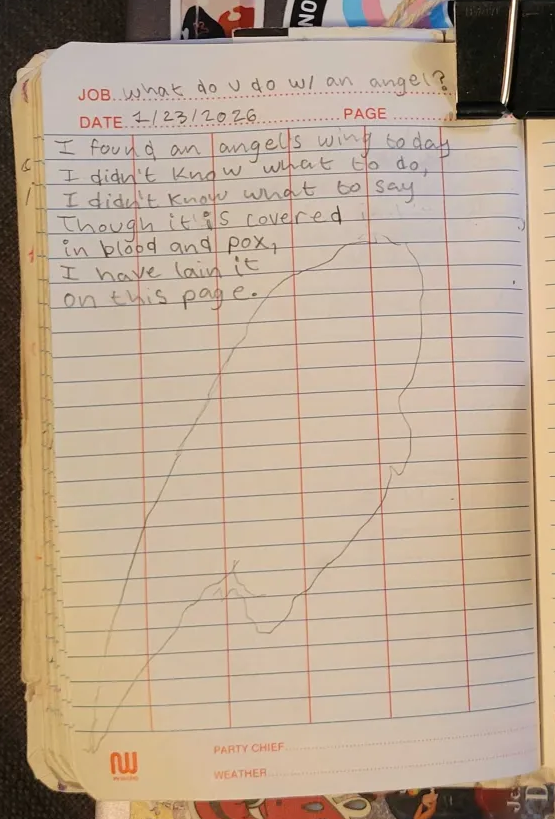 NO
JOB what do u do w/ an angel?
DATE 1/23/2026 PAGE
I found an angel's wing today
I didn't know what to do,
I didn't know what to say
Though it is covered
in blood and pox,
I have lain it
on this page.
PARTY CHIEF
WEATHER